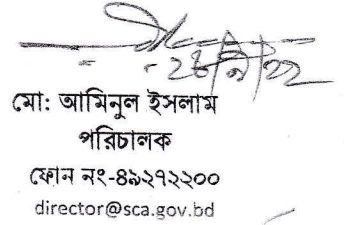 মো: আমিনুল ইসলাম
পরিচালক
ফোন নং-৪৯২৭২২০০
director@sca.gov.bd